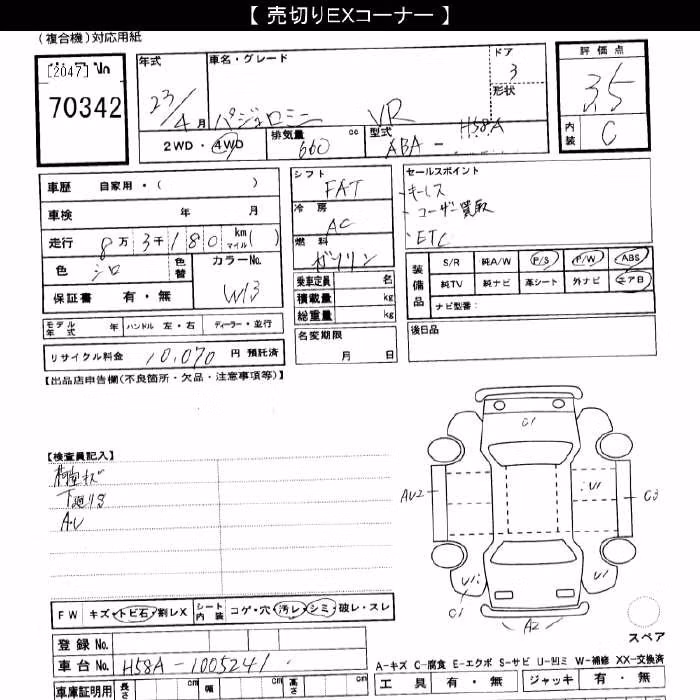 【 売切りEXコーナー 】
(複合機)対応用紙
[2047] No
70342
年式 23/4月
車名・グレード パジェロミニ VR
ドア 3
形状
評価点 3.5
内装 C
2WD・4WD
排気量 660 cc
型式 ABA - H58A
車歴 自家用・( )
車検 年 月
走行 8万3千180 km マイル( )
色 シロ 色替
カラーNo. W13
保証書 有・無
シフト FAT
冷房 AC
燃料 ガソリン
乗車定員 名
積載量 kg
総重量 kg
セールスポイント
・キーレス
・ユーザー買取
・ETC
装備品 S/R 純A/W P/S P/W ABS
純TV 純ナビ 革シート 外ナビ エアB
ナビ型番:
モデル年式 年 ハンドル 左・右 ディーラー・並行
名変期限 月 日
後日品
リサイクル料金 10,070 円 預託済
【出品店申告欄(不良箇所・欠品・注意事項等)】
【検査員記入】
下廻りS
A・U
C1
AU2
U1
C3
U1
U1
C1
A2
スペア
FW キズ・トビ石・割レX シート内装 コゲ・穴・汚レ・シミ・破レ・スレ
登録 No.
車台 No. H58A-1005241
A-キズ C-腐食 E-エクボ S-サビ U-凹ミ W-補修 XX-交換済
車庫証明用 長さ cm 幅 cm 高さ cm
工具 有・無 ジャッキ 有・無